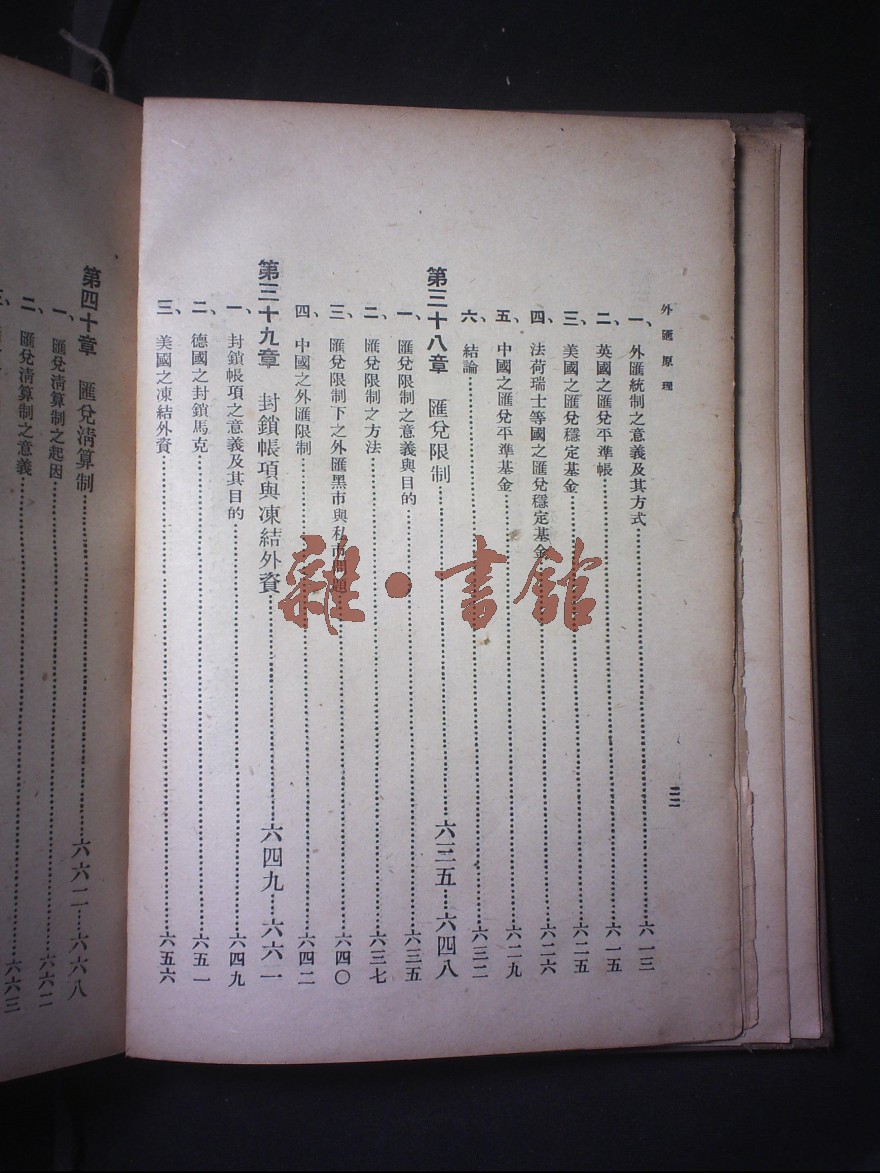 外匯原理
二二
一、外匯統制之意義及其方式……六一三
二、英國之匯兌平準帳……六一五
三、美國之匯兌穩定基金……六二五
四、法荷瑞士等國之匯兌穩定基金……六二六
五、中國之匯兌平準基金……六二九
六、結論……六三二
第三十八章 匯兌限制……六三五—六四八
一、匯兌限制之意義與目的……六三五
二、匯兌限制之方法……六三七
三、匯兌限制下之外匯黑市與私市問題……六四〇
四、中國之外匯限制……六四二
第三十九章 封鎖帳項與凍結外資……六四九—六六一
一、封鎖帳項之意義及其目的……六四九
二、德國之封鎖馬克……六五一
三、美國之凍結外資……六五六
第四十章 匯兌清算制……六六二—六六八
一、匯兌清算制之起因……六六二
二、匯兌清算制之意義……六六三
三、
雜·書館